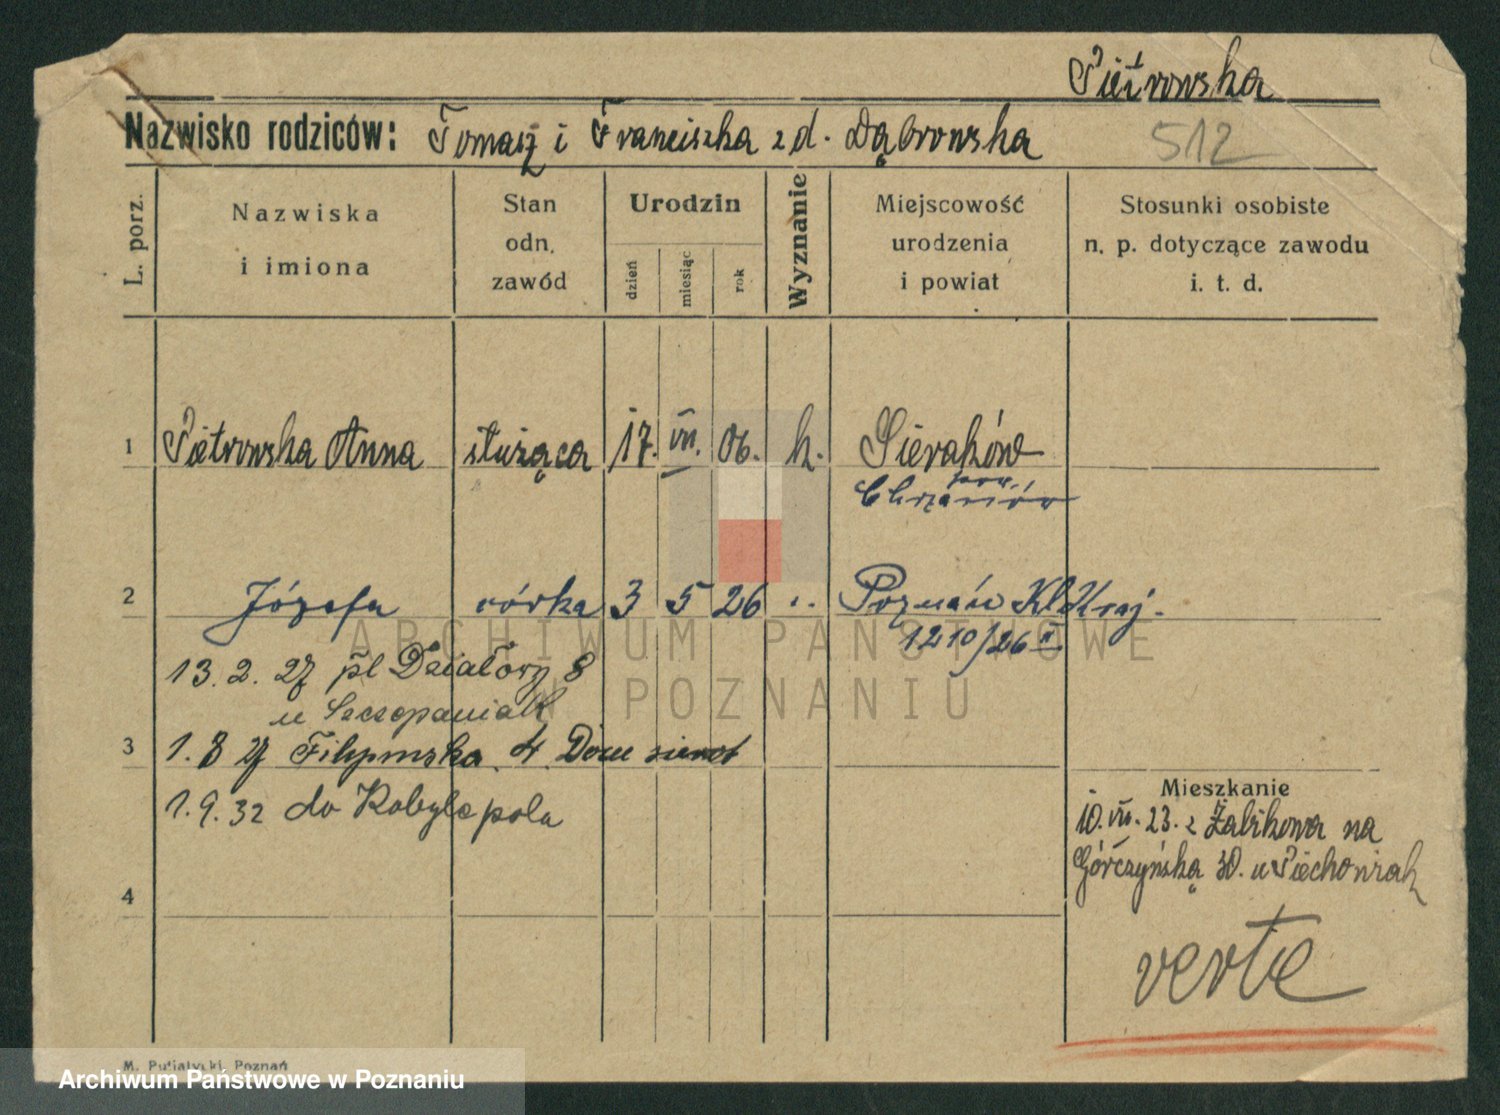 Piotrowska
Nazwisko rodziców: Tomasz i Franciszka z d. Dąbrowska
512
L. porz.
Nazwiska
i imiona
Stan
odn.
zawód
Urodzin
dzień
miesiąc
rok
Wyznanie
Miejscowość
urodzenia
i powiat
Stosunki osobiste
n. p. dotyczące zawodu
i. t. d.
1 Piotrowska Anna służąca 17. VII. 06. k. Sieraków
pow.
Chrzanów
2 Józefa córka 3 5 26 Poznań Kl. Kraj.
1210/26 II
13. 2. 27 pl Działowy 8
u Szczepaniak
3 1. 8 27 Filipińska 4. Dom sierot
1. 9. 32 do Kobylepola
4
Mieszkanie
10. VII. 23. z Żabikowa na
Górczyńską 30. u Piechowiak
verte
M. Putiatycki, Poznań
ARCHIWUM PAŃSTWOWE
W POZNANIU
Archiwum Państwowe w Poznaniu